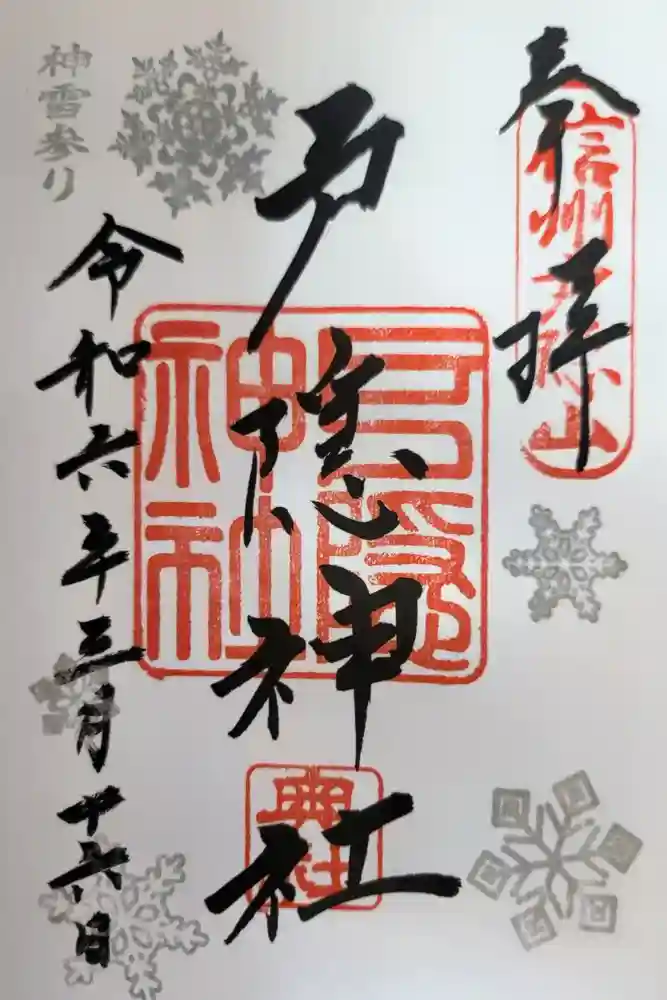 奉拝
信州戸隠山
戸隠神社
戸隠神社
典社
神雪参り
令和六年三月十六日